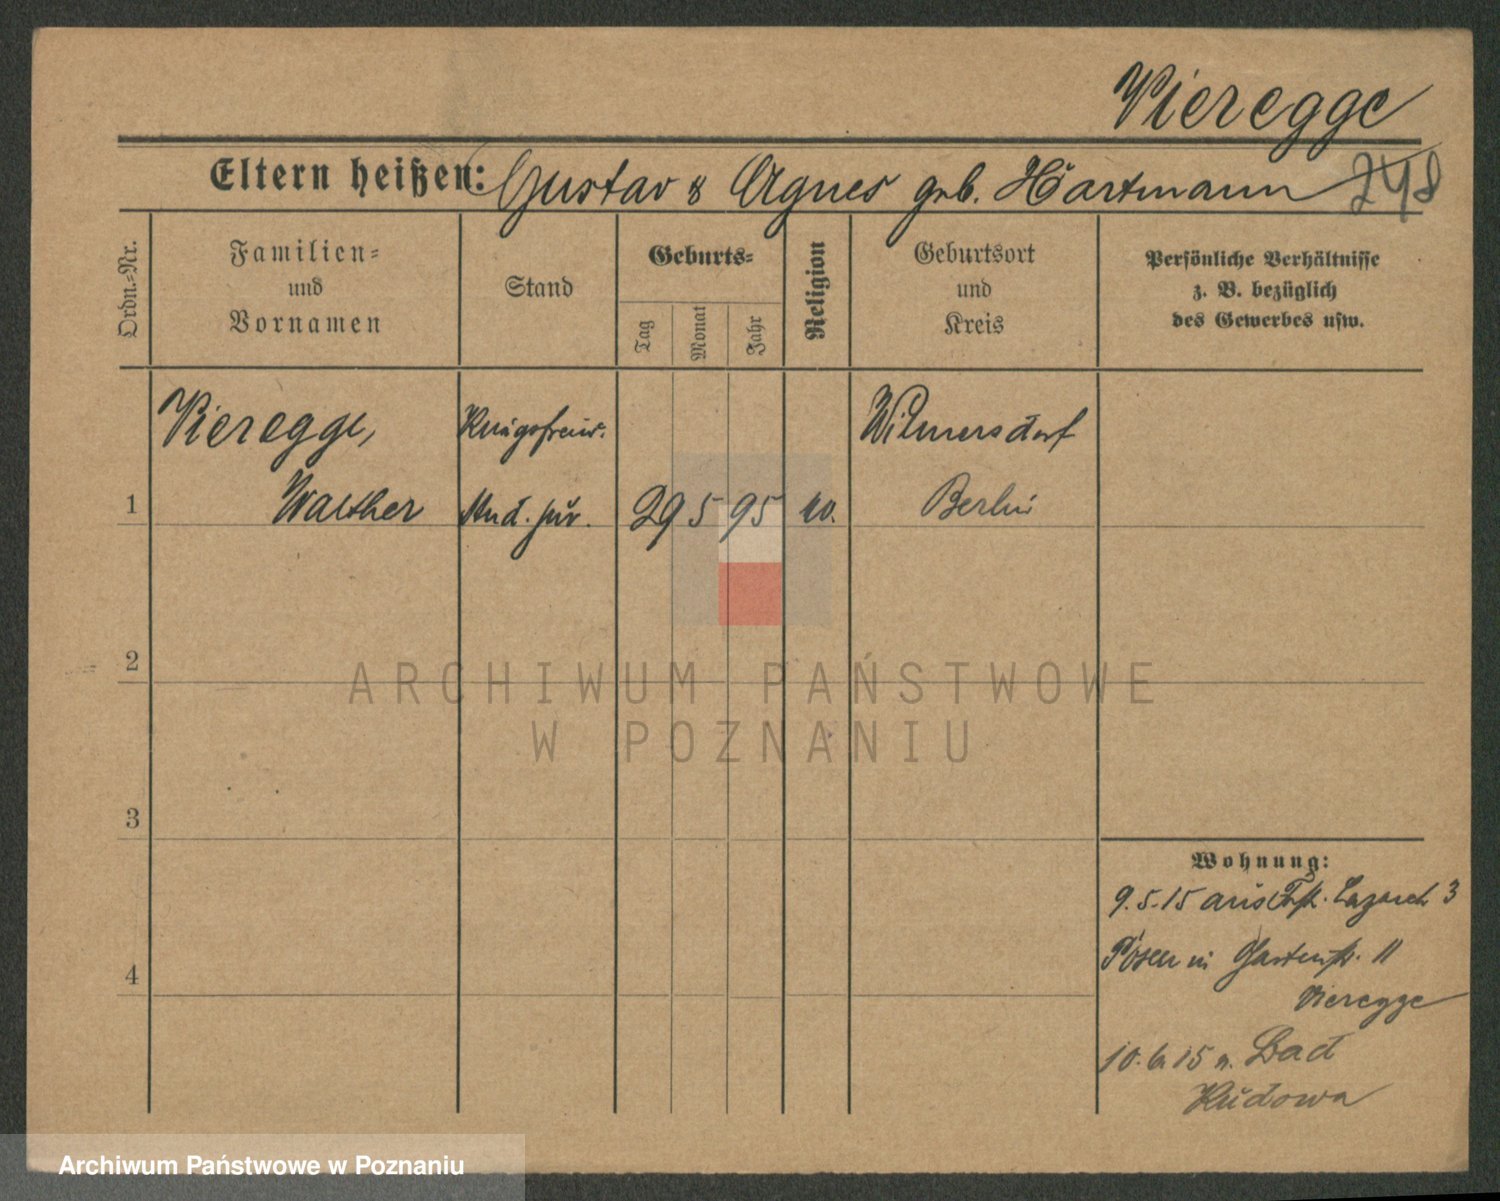 Vieregge
Eltern heißen: Gustav & Agnes geb. Hartmann 248
Ordn.-Nr.
Familien-
und
Vornamen
Stand
Geburts-
Tag
Monat
Jahr
Religion
Geburtsort
und
Kreis
Persönliche Verhältnisse
z. B. bezüglich
des Gewerbes usw.
Vieregge, Kriegsfreiw. Wilmersdorf
1 Walther stud. jur. 29 5 95 Berlin
2
ARCHIWUM PAŃSTWOWE
W POZNANIU
3
Wohnung:
9.5.15 aus Lazarett 3
4 Posen in Gartenstr. 11
Vieregge
10.6.15 n. Bad
Kudowa
Archiwum Państwowe w Poznaniu